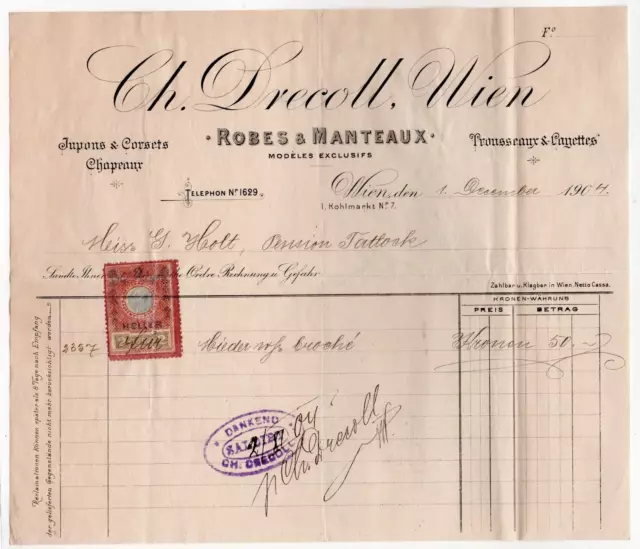 Fº
Ch. Drecoll, Wien
Jupons & Corsets
Chapeaux
· ROBES & MANTEAUX ·
MODÈLES EXCLUSIFS
Trousseaux & Layettes
TELEPHON Nº 1629.
Wien, den 1. December 1904.
I. Kohlmarkt Nº 7.
Miss G. Holt, Pension Tatlock
Sandte Ihnen Ordre, Rechnung u. Gefahr
Zahlbar u. Klagbar in Wien. Netto Cassa.
KRONEN-WÄHRUNG
PREIS BETRAG
2
HELLER
2357 Mieder broché Kronen 50.-
DANKEND
CH. DRECOLL
Ch. Drecoll
Reclamationen können später als 8 Tage nach Empfang
der gelieferten Gegenstände nicht mehr berücksichtigt werden.